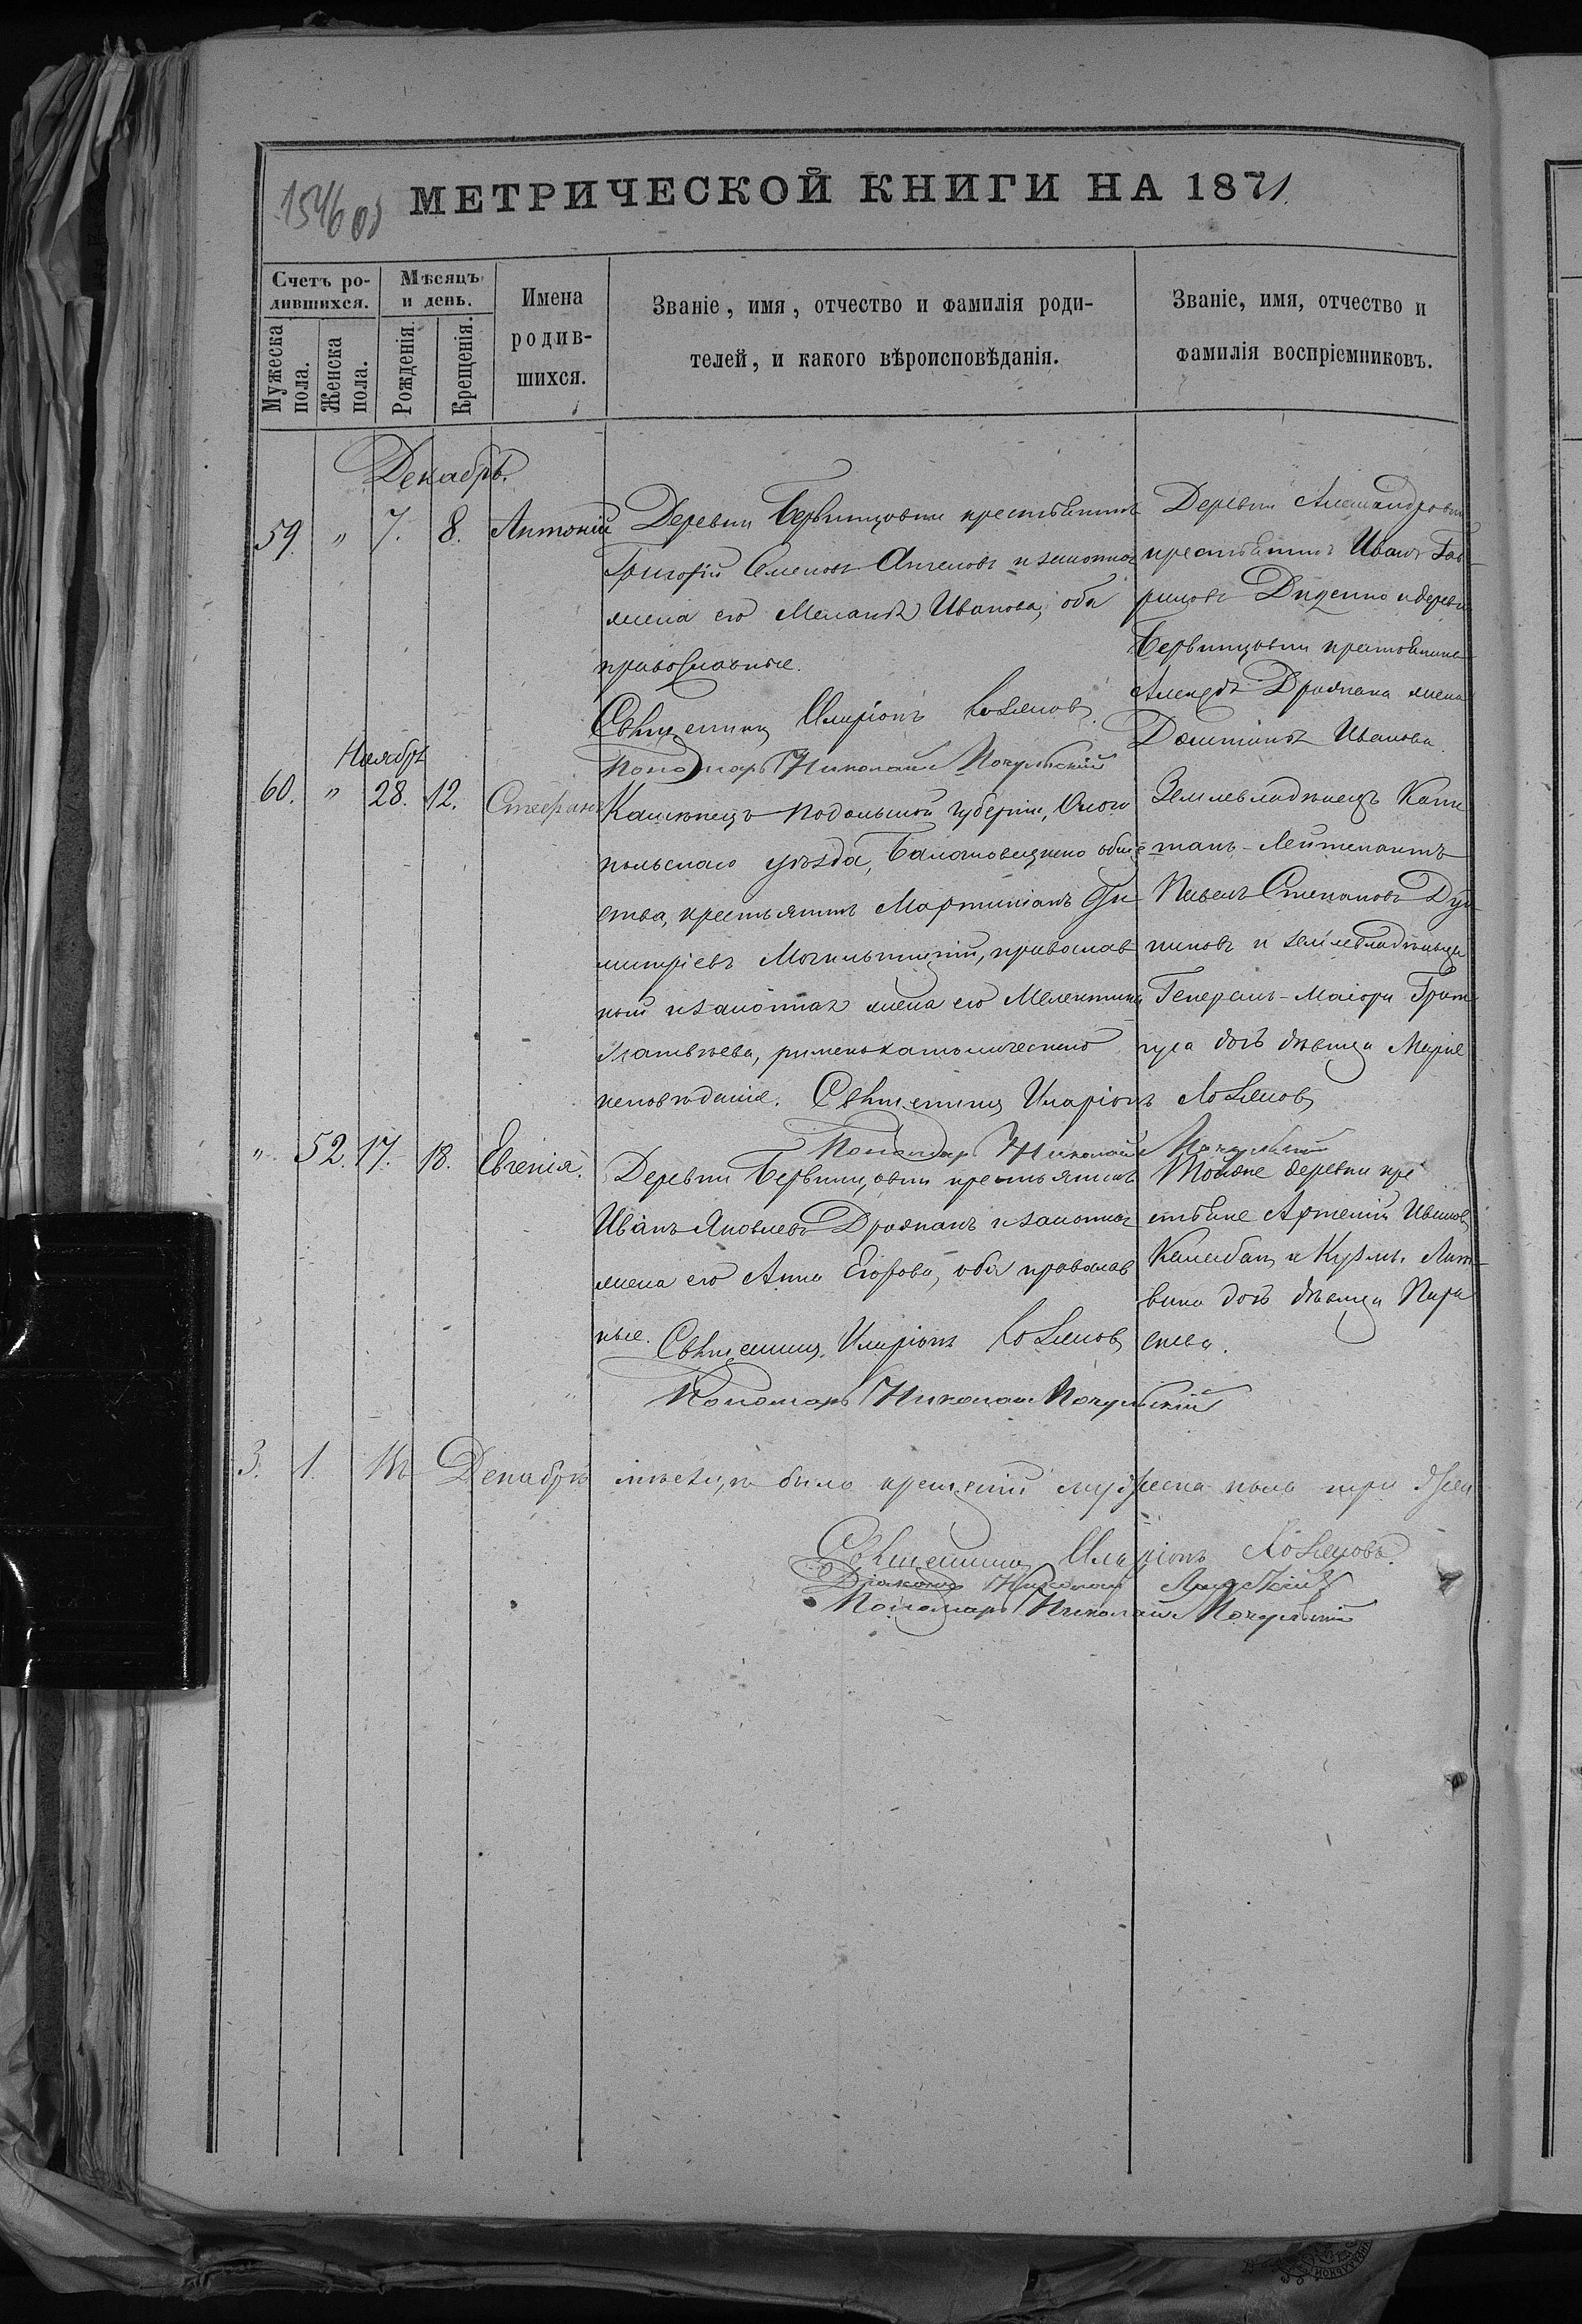 1546 об
МЕТРИЧЕСКОЙ КНИГИ НА 1871.
Счетъ ро-
дившихся.
Мужеска
пола.
Женска
пола.
Мѣсяцъ
и день.
Рожденія.
Крещенія.
Имена
родив-
шихся.
Званіе, имя, отчество и фамилія роди-
телей, и какого вѣроисповѣданія.
Званіе, имя, отчество и
фамилія воспріемниковъ.
Декабрь.
59. " 7. 8. Антоній
Деревни крестьянинъ
Григорій Семеновъ и законная
жена его Меланія Иванова, оба
православные.
Священникъ Иларіонъ
Пономарь Николай
Деревни Александровки
крестьянинъ Иванъ Гав-
риловъ Диденко и деревни
крестьянина
Алексѣя Драгана жена
Домникія Иванова.
Ноябрь
60. " 28. 12. Стефанъ
Каменецъ Подольской губерніи, Ольго
польскаго уѣзда, обще
ства, крестьянинъ Мартиніанъ Ди
митріевъ Могильницкій, православ
ный и законная жена его
Матвѣева, римскокатолическаго
исповѣданія. Священникъ Иларіонъ
Пономарь Николай
Землевладѣлецъ Капи
танъ-Лейтенантъ
Павелъ Степановъ
и землевладѣльца
Генералъ-Маіора
дочь дѣвица Марія
" 52. 17. 18. Евгенія.
Деревни крестьянинъ
Иванъ Яковлевъ Драганъ и законная
жена его Анна Егорова, оба православ
ные. Священникъ Иларіонъ
Пономарь Николай
Тойже деревни кре
стьяне Артемій Ивановъ
и Кузьмы Лит-
вина дочь дѣвица Пара
скева.
3. 1. Въ Декабрѣ мѣсяцѣ было крещеній мужеска пола три
Священникъ Иларіонъ
Діаконъ Николай
Пономарь Николай